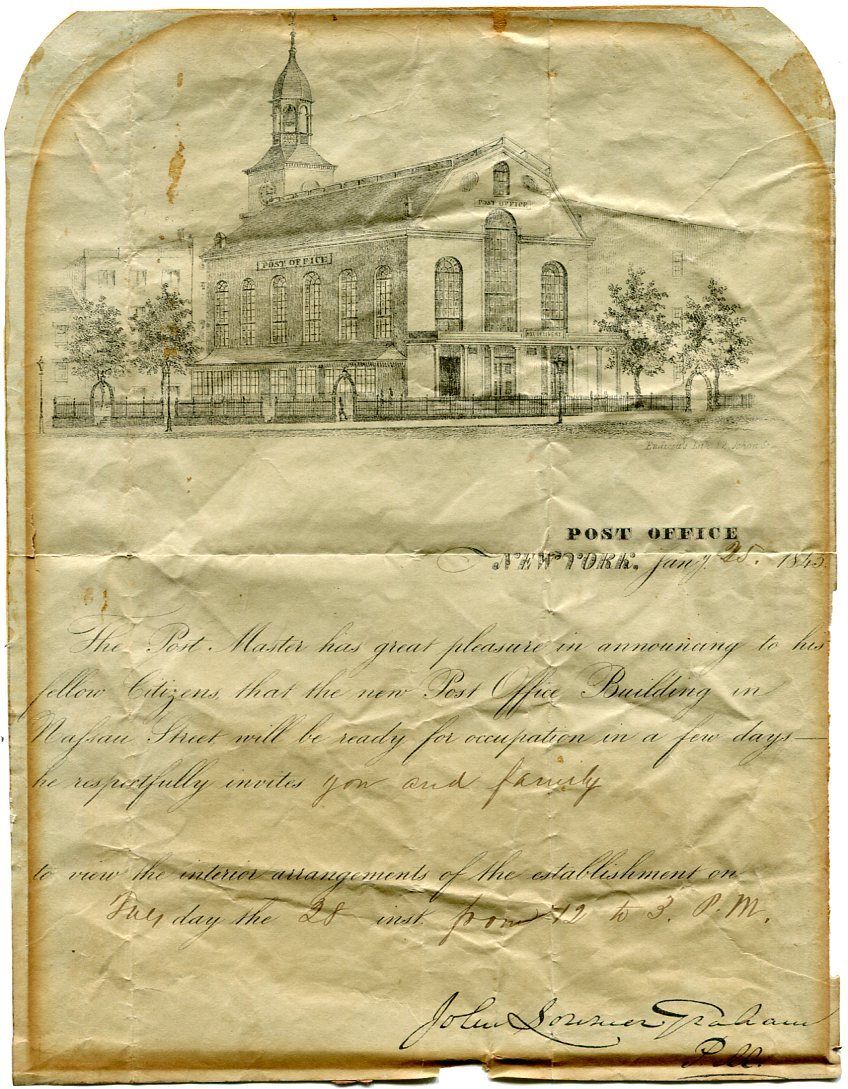 POST OFFICE
POST OFFICE
POST OFFICE
NEW-YORK. Jany. 25. 1845.
The Post Master has great pleasure in announcing to his
fellow Citizens, that the new Post Office Building in
Naſsau Street will be ready for occupation in a few days—
he respectfully invites you and family
to view the interior arrangements of the establishment on
Tues day the 28 inst. from 12 to 3. P.M.
John Lorimer Graham
P.M.